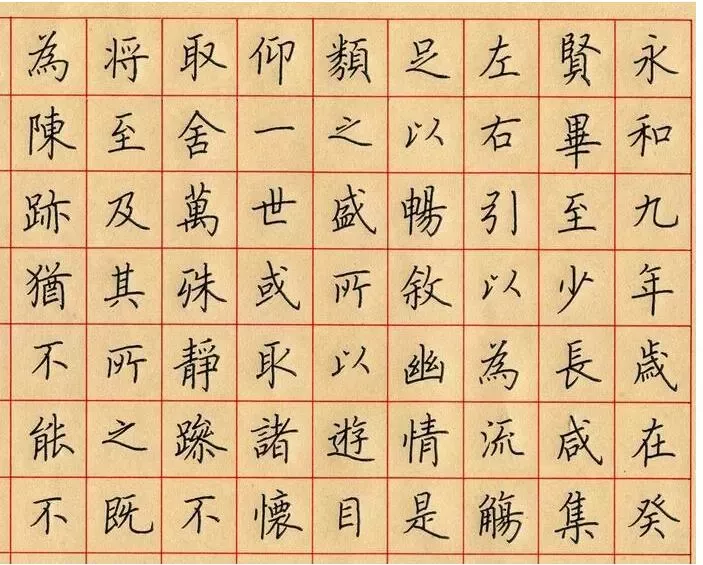 永和九年歳在癸
賢畢至少長咸集
左右引以為流觴
足以暢敘幽情是
類之盛所以遊目
仰一世或取諸懷
取舍萬殊靜躁不
将至及其所之既
為陳跡猶不能不